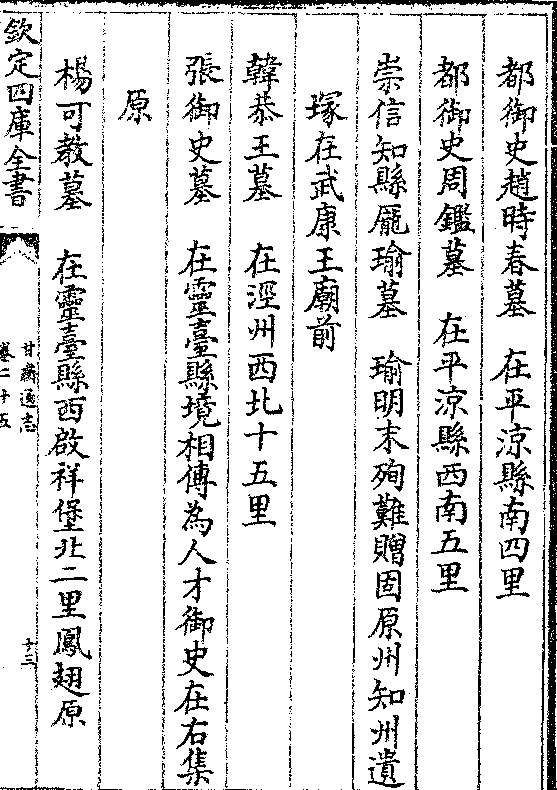 都御史趙時春墓　在平涼縣南四里
都御史周鑑墓　在平涼縣西南五里
崇信知縣龎瑜墓　瑜明末殉難贈固原州知州遺
塚在武康王廟前
韓恭王墓　在涇州西北十五里
張御史墓　在靈臺縣境相傳為人才御史在右集
原
楊可教墓　在靈臺縣西啟祥堡北二里鳳翅原
欽定四庫全書
甘肅通志
卷二十五
十三